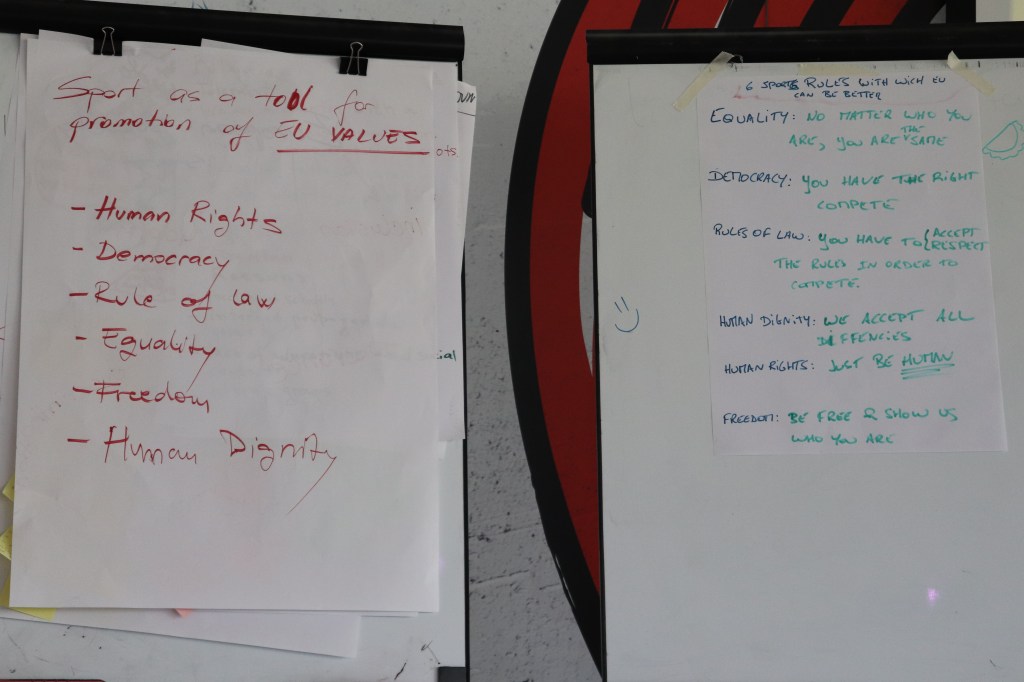 Sport as a tool for
promotion of EU VALUES
- Human Rights
- Democracy
- Rule of law
- Equality
- Freedom
- Human Dignity
ots
ial
6 SPORTS RULES WITH WICH EU
CAN BE BETTER
EQUALITY: NO MATTER WHO YOU
ARE, YOU ARE THE SAME
DEMOCRACY: YOU HAVE THE RIGHT
COMPETE
RULES OF LAW: YOU HAVE TO { ACCEPT
RESPECT
THE RULES IN ORDER TO
COMPETE.
HUMAN DIGNITY: WE ACCEPT ALL
DIFFENCIES
HUMAN RIGHTS: JUST BE HUMAN
FREEDOM: BE FREE & SHOW US
WHO YOU ARE